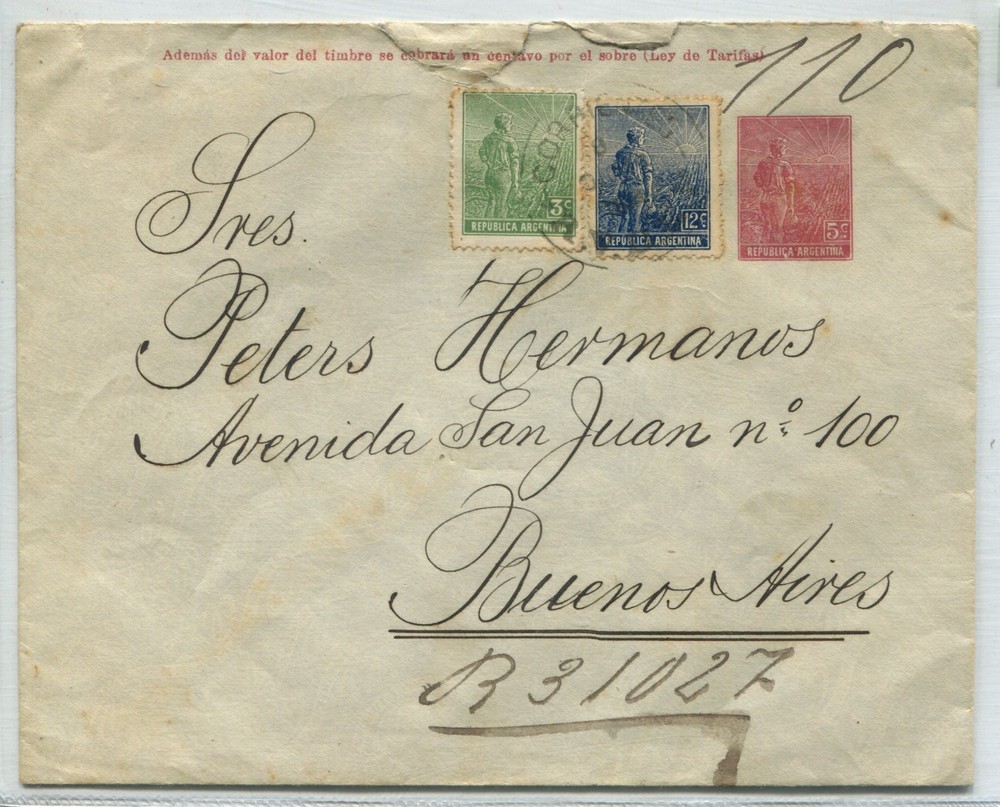 Además del valor del timbre se cobrará un centavo por el sobre (Ley de Tarifas)
110
3c
REPÚBLICA ARGENTINA
12c
REPÚBLICA ARGENTINA
5c
REPÚBLICA ARGENTINA
Sres.
Peters Hermanos
Avenida San Juan nº 100
Buenos Aires
R 31027